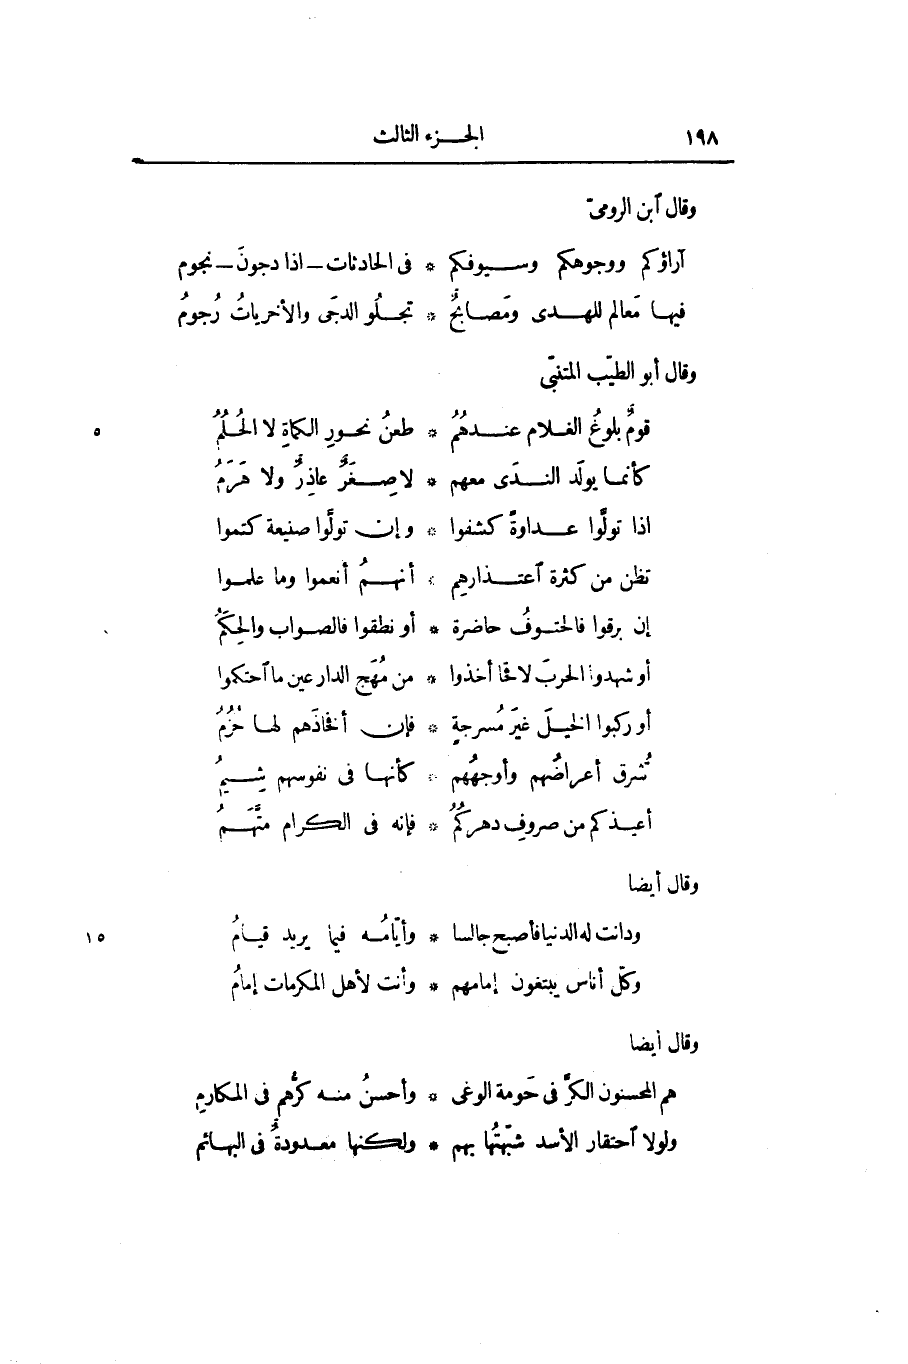 ١٩٨ الجـزء الثالث
وقال ٱبن الرومىّ
آراؤكم ووجوهكم وسيوفكم * فى الحادثات ـ اذا دجونَ ـ نجوم
فيها مَعالم للهدى ومَصابحٌ * تجلُو الدجَى والأخرياتُ رُجومُ
وقال أبو الطيّب المتنبّى
قومٌ بلوغُ الغلام عندهُمُ * طعنُ نحورِ الكماةِ لا الحُلُمُ ٥
كأنما يولَد الندَى معهم * لا صِغَرٌ عاذِرٌ ولا هَرَمُ
اذا تولَّوا عداوةً كشفوا * وإن تولَّوا صنيعة كتموا
تظن من كثرة ٱعتذارهِم * أنهمُ أنعموا وما علموا
إن برقوا فالحتوفُ حاضرة * أو نطقوا فالصواب والحِكَمُ
أو شهدوا الحربَ لاقحًا أخذوا * من مُهَج الدارعين ما ٱحتكموا
أو ركبوا الخيلَ غيرَ مُسرجةٍ * فإن أفخاذَهم لها حُزُمُ
تُشرق أعراضُهم وأوجهُهم * كأنها فى نفوسهم شِيَمُ
أعيذكم من صروفِ دهركُمُ * فإنه فى الكرام متَّهَمُ
وقال أيضا
ودانت له الدنيا فأصبح جالسا * وأيّامُه فيما يريد قيامُ ١٥
وكلّ أناس يبتغون إمامهم * وأنت لأهل المكرمات إمامُ
وقال أيضا
هم المحسنون الكرَّ فى حَومة الوغى * وأحسنُ منه كرُّهم فى المكارمِ
ولولا ٱحتقار الأسد شبّهتُها بهم * ولكنها معدودةٌ فى البهائم